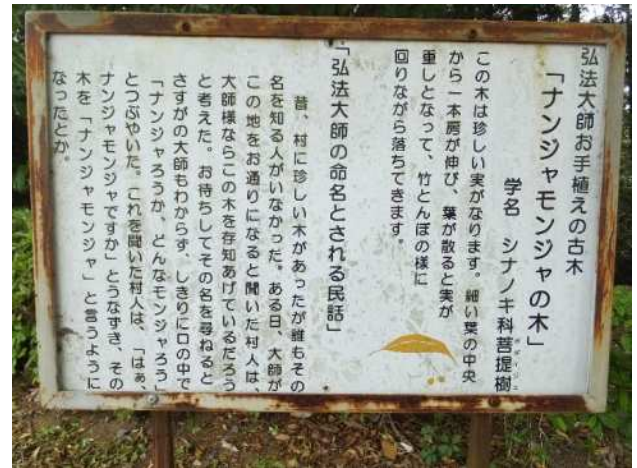 弘法大師お手植えの古木
「ナンジャモンジャの木」
学名 シナノキ科菩提樹
この木は珍しい実がなります。細い葉の中央
から一本房が伸び、葉が散ると実が
重しとなって、竹とんぼの様に
回りながら落ちてきます。
「弘法大師の命名とされる民話」
昔、村に珍しい木があったが誰もその
名を知る人がいなかった。ある日、大師が
この地をお通りになると聞いた村人は、
大師様ならこの木を存知あげているだろう
と考えた。お待ちしてその名を尋ねると
さすがの大師もわからず、しきりに口の中で
「ナンジャろうか、どんなモンジャろう」
とつぶやいた。これを聞いた村人は、「はぁ、
ナンジャモンジャですか」とうなずき、その
木を「ナンジャモンジャ」と言うように
なったとか。